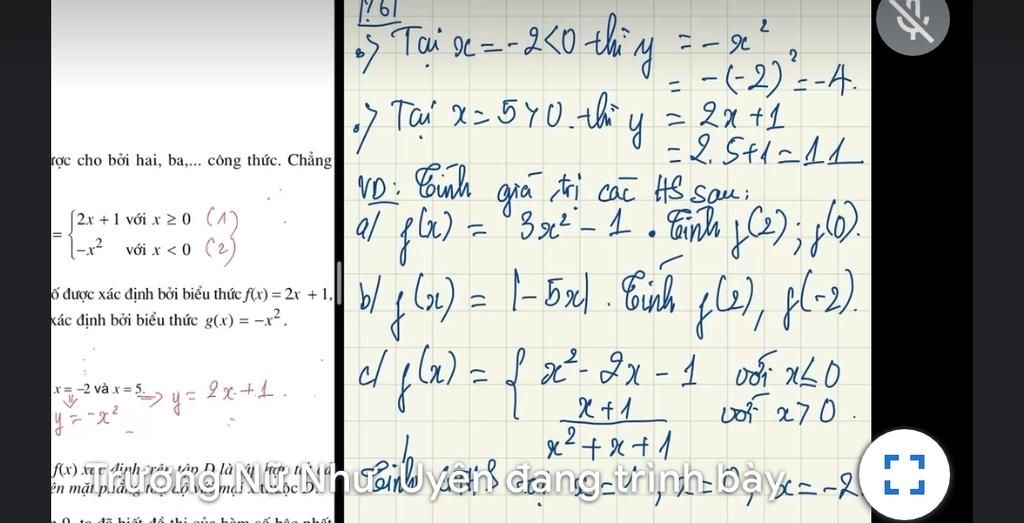 ược cho bởi hai, ba,... công thức. Chẳng
= { 2x + 1 với x ≥ 0 (1)
−x² với x < 0 (2)
ố được xác định bởi biểu thức f(x) = 2x + 1,
xác định bởi biểu thức g(x) = −x².
x = −2 và x = 5. => y = 2x + 1.
y = −x²
f(x) xác định trên tập D là
?6
Tại x = −2 < 0 thì y = −x²
= −(−2)² = −4.
Tại x = 5 > 0. thì y = 2x + 1
= 2.5 + 1 = 11
VD: Tính giá trị các HS sau:
a/ f(x) = 3x² − 1. Tính f(2); f(0).
b/ f(x) = |−5x|. Tính f(2), f(−2).
c/ f(x) = { x² − 2x − 1 với x ≤ 0
x + 1 / x² + x + 1 với x > 0.
x = −2
Trương Nữ Như Uyên đang trình bày